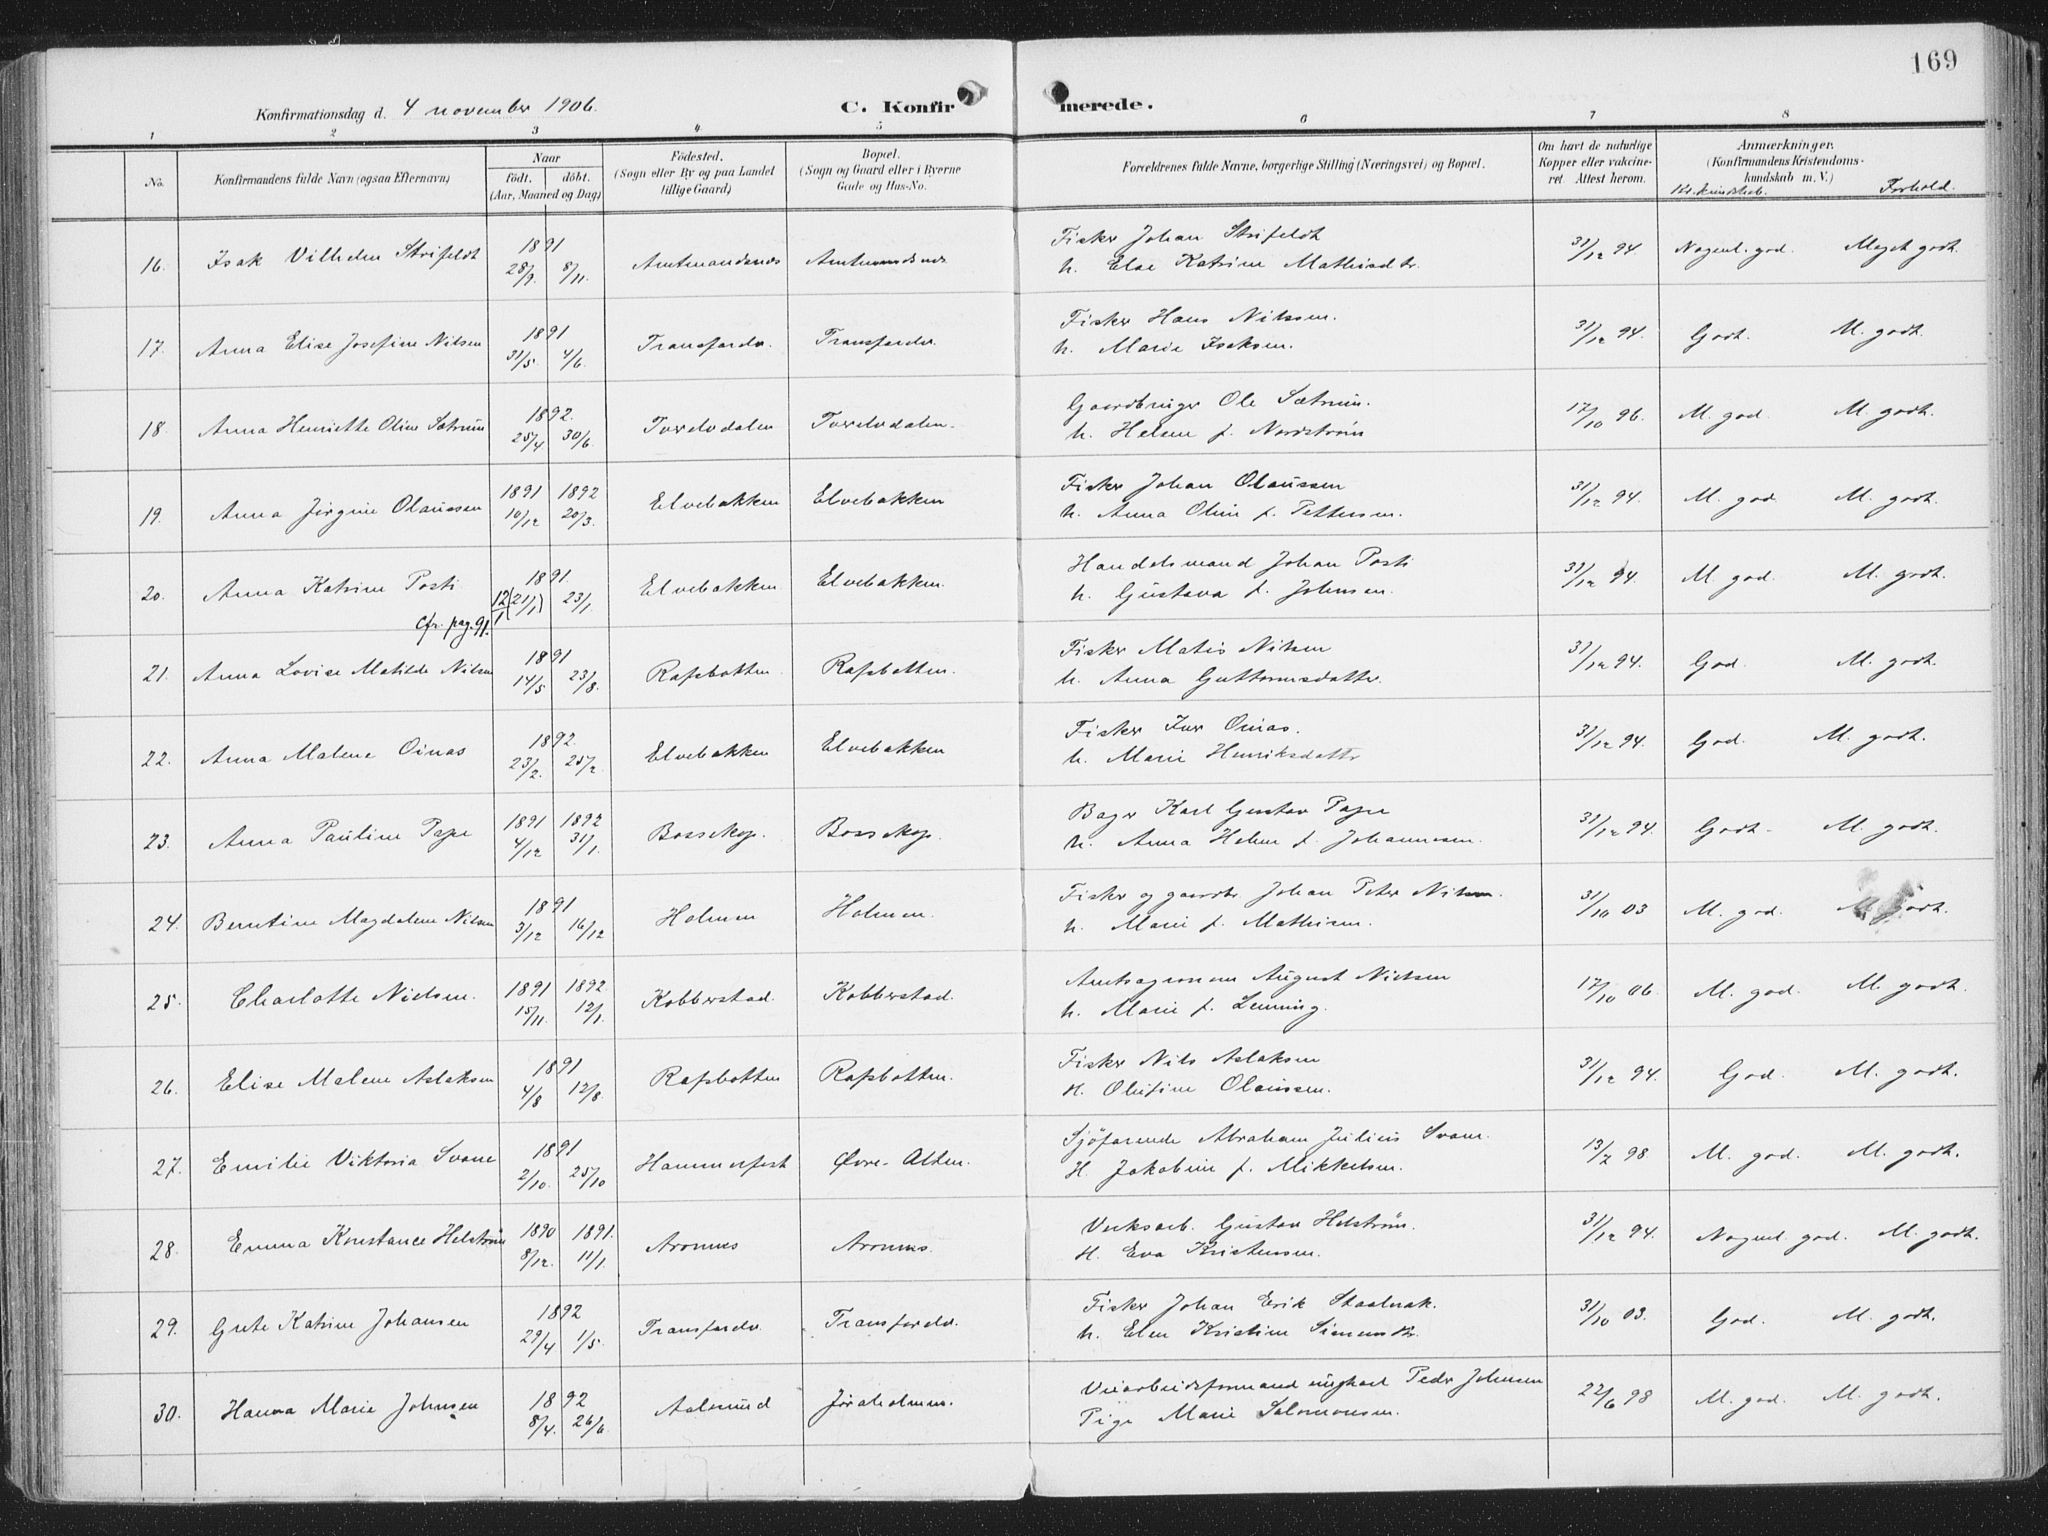 169
Konfirmationsdag d. 4 november 1906.
C. Konfirmerede.
1 2 3 4 5 6 7 8
No.
Konfirmandens fulde Navn (ogsaa Efternavn)
Naar
födt. döbt.
(Aar, Maaned og Dag)
Födested.
(Sogn eller By og paa Landet
tillige Gaard)
Bopæl.
(Sogn og Gaard eller i Byerne
Gade og Hus-No.
Forældrenes fulde Navne, borgerlige Stilling (Næringsvei) og Bopæl.
Om havt de naturlige
Kopper eller vakcine-
ret. Attest herom.
Anmærkninger.
(Konfirmandens Kristendoms-
kundskab m. V.)
Kr. kundskab. Forhold.
16. Isak Vilhelm Strifeldt 1891 28/9. 8/11. Amtmandsnes Amtmandsnes Fisker Johan Strifeldt 31/12 94. Nogenl. god. Meget godt.
h. Else Katrine Mathisdtr.
17. Anna Elise Josefine Nilsen 1891 31/5 4/6. Transfardv. Transfardv. Fisker Hans Nilssen. 31/12 94. Godt. M. godt.
h. Marie Isaksen.
18. Anna Henriette Oline Sætrum 1892. 25/4 30/6. Tverelvdalen Tverelvdalen. Gaardbruger Ole Sætrum. 17/10 96. M. god. M. godt.
h. Helene f. Nordström
19. Anna Jörgine Olaussen 1891 1892 10/12 20/3. Elvebakken Elvebakken Fisker Johan Olaussen 31/12 94. M. god M. godt.
h. Anna Oline f. Pettersen.
20. Anna Katrine Posti 1891 12/1 (21/1) 23/1. Elvebakken Elvebakken. Handelsmand Johan Posti 31/12 94. M. god. M. godt.
Cfr. pag. 91. h. Gustava f. Johnsen.
21. Anna Lovise Matilde Nilsen 1891 14/5 23/8. Rafsbotten Rafsbotten. Fisker Matis Nilsen 31/12 94. God. M. godt.
h. Anna Guttormsdatter.
22. Anna Malene Oinas 1892. 23/2. 25/2. Elvebakken Elvebakken Fisker Iver Oinas. 31/12 94. God. M. godt.
h. Marie Henriksdatter
23. Anna Pauline Pape 1891 1892 4/12 31/1. Bossekop. Bossekop. Bager Karl Gustav Pape 31/12 94. Godt. M. godt.
h. Anna Helene f. Johannesen.
24. Berntine Magdalene Nilsen 1891 3/12 16/12 Holmen Holmen. Fisker og gaardbr. Johan Peter Nilsen. 31/10 03 M. god. M. godt.
h. Marie f. Mathisen.
25. Charlotte Nielsen. 1891 1892 15/11. 12/1. Kobberstad. Kobberstad. Amtsagronom August Nielsen 17/10 06. M. god. M. godt.
h. Marie f. Lemming.
26. Elise Malene Aslaksen 1891 4/8 12/8. Rafsbotten Rafsbotten. Fisker Nils Aslaksen 31/12 94. God. M. godt.
H. Olufine Olaussen.
27. Emilie Viktoria Svane 1891 2/10. 25/10 Hammerfest Øvre-Alten. Sjöfarende Abraham Julius Svane. 13/2 98 M. god. M. godt.
H. Jakobine f. Mikkelsen.
28. Emma Konstance Helström 1890 1891. 8/12. 11/1. Aronnes Aronnes. Verksarb. Gustav Helström. 31/12 94. Nogenl. god. M. godt.
H. Eva Kristensen.
29. Grete Katrine Johansen 1892 29/4 1/5. Transfardv. Transfardv. Fisker Johan Erik 31/10 03. God. M. godt.
h. Elen Kristine Simensdtr.
30. Hanna Marie Johnsen 1892 8/4. 26/6 Aalesund Jöraholmen. Veiarbeidsformand ungkarl Peder Johnsen 22/6 98 M. god. M. godt.
Pige Marie Salomonsen.